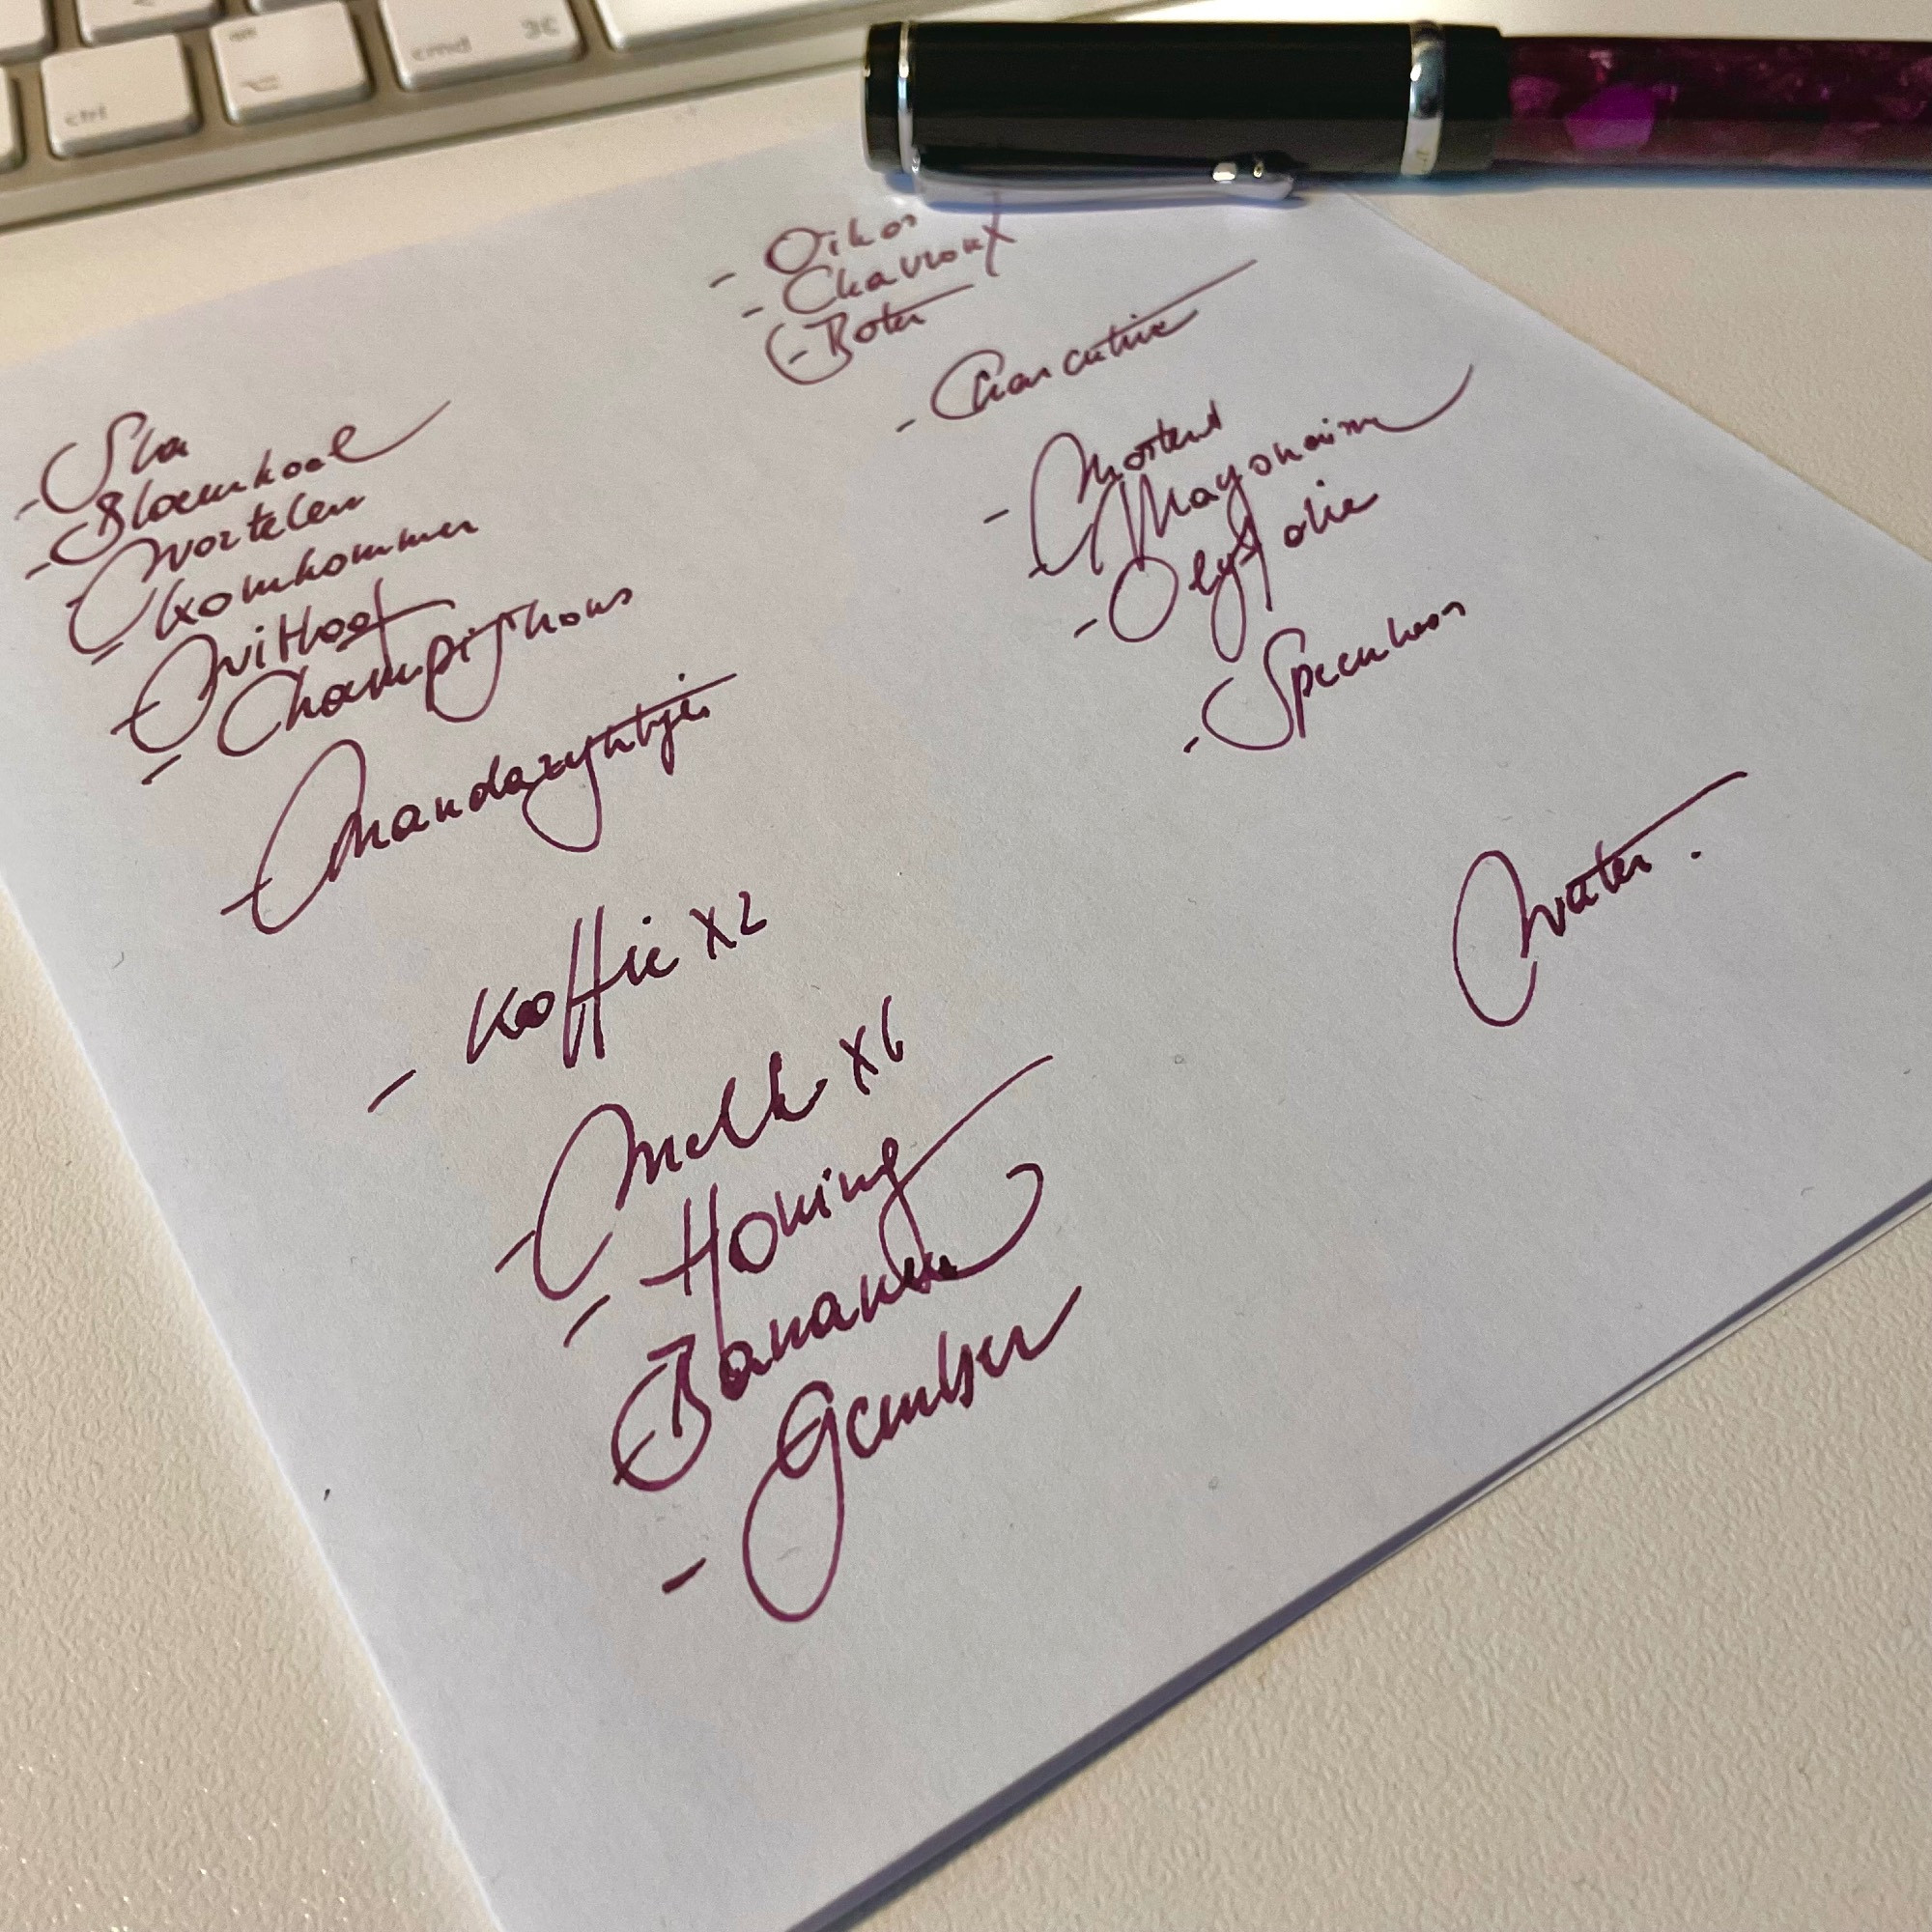 ctrl
cmd ⌘
- Sla
- Bloemkool
- Wortelen
- Komkommer
- Witloof
- Champignons
- Mandarijntjes
- Koffie x2
- Melk x6
- Honing
- Bananen
- Gember
- Oikos
- Chavroux
- Boter
- Charcuterie
- Mosterd
- Mayonaise
- Olijfolie
- Speculoos
Water.